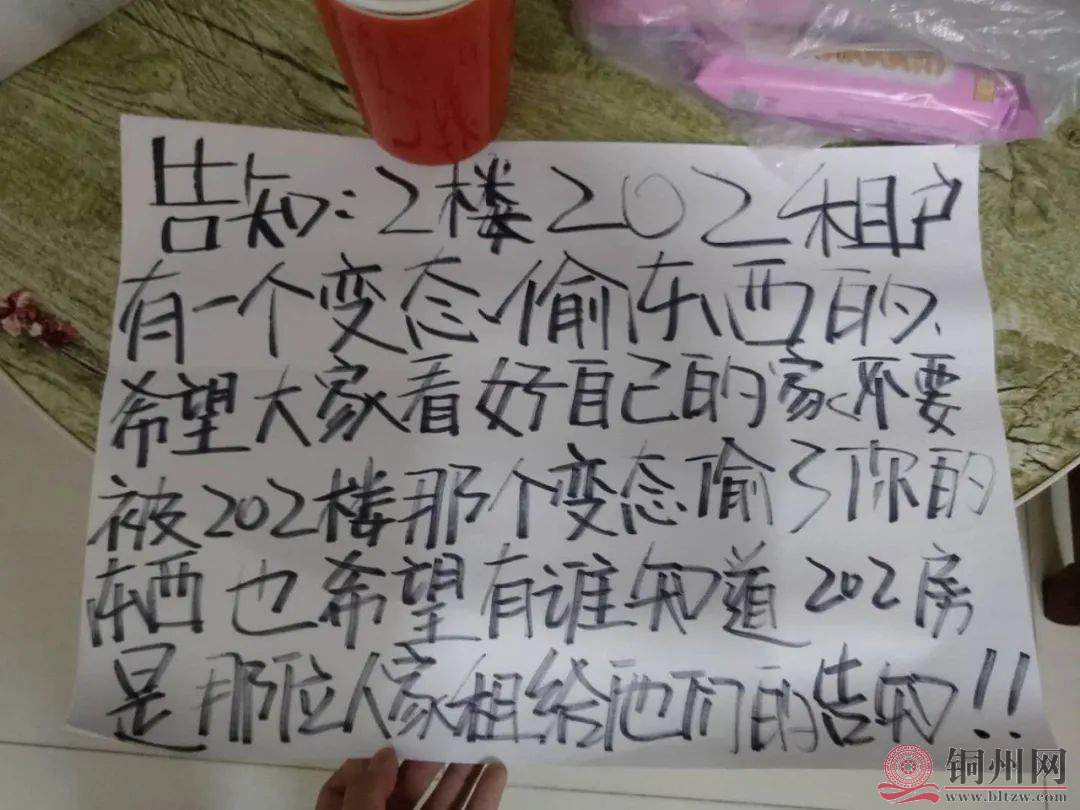 告知:2楼202租户
有一个变态偷东西的、
希望大家看好自己的家不要
被202楼那个变态偷了你的
东西也希望有谁知道202房
是那位人家租给他们的告知!!
铜州网
www.bltzw.com